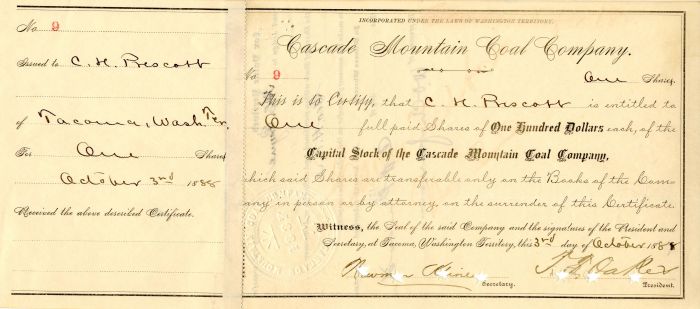 No 9
Issued to C. H. Prescott
of Tacoma, Wash. Ter.
For One Shares
October 3rd 1888
Received the above described Certificate.
INCORPORATED UNDER THE LAWS OF WASHINGTON TERRITORY.
Cascade Mountain Coal Company.
No 9 One Shares.
This is to Certify, that C. H. Prescott is entitled to
One full paid Shares of One Hundred Dollars each, of the
Capital Stock of the Cascade Mountain Coal Company,
which said Shares are transferable only on the Books of the Com-
pany in person or by attorney on the surrender of this Certificate.
Witness, the Seal of the said Company and the signatures of the President and
Secretary, at Tacoma, Washington Territory, this 3rd day of October 1888
T. F. Oakes
Secretary.